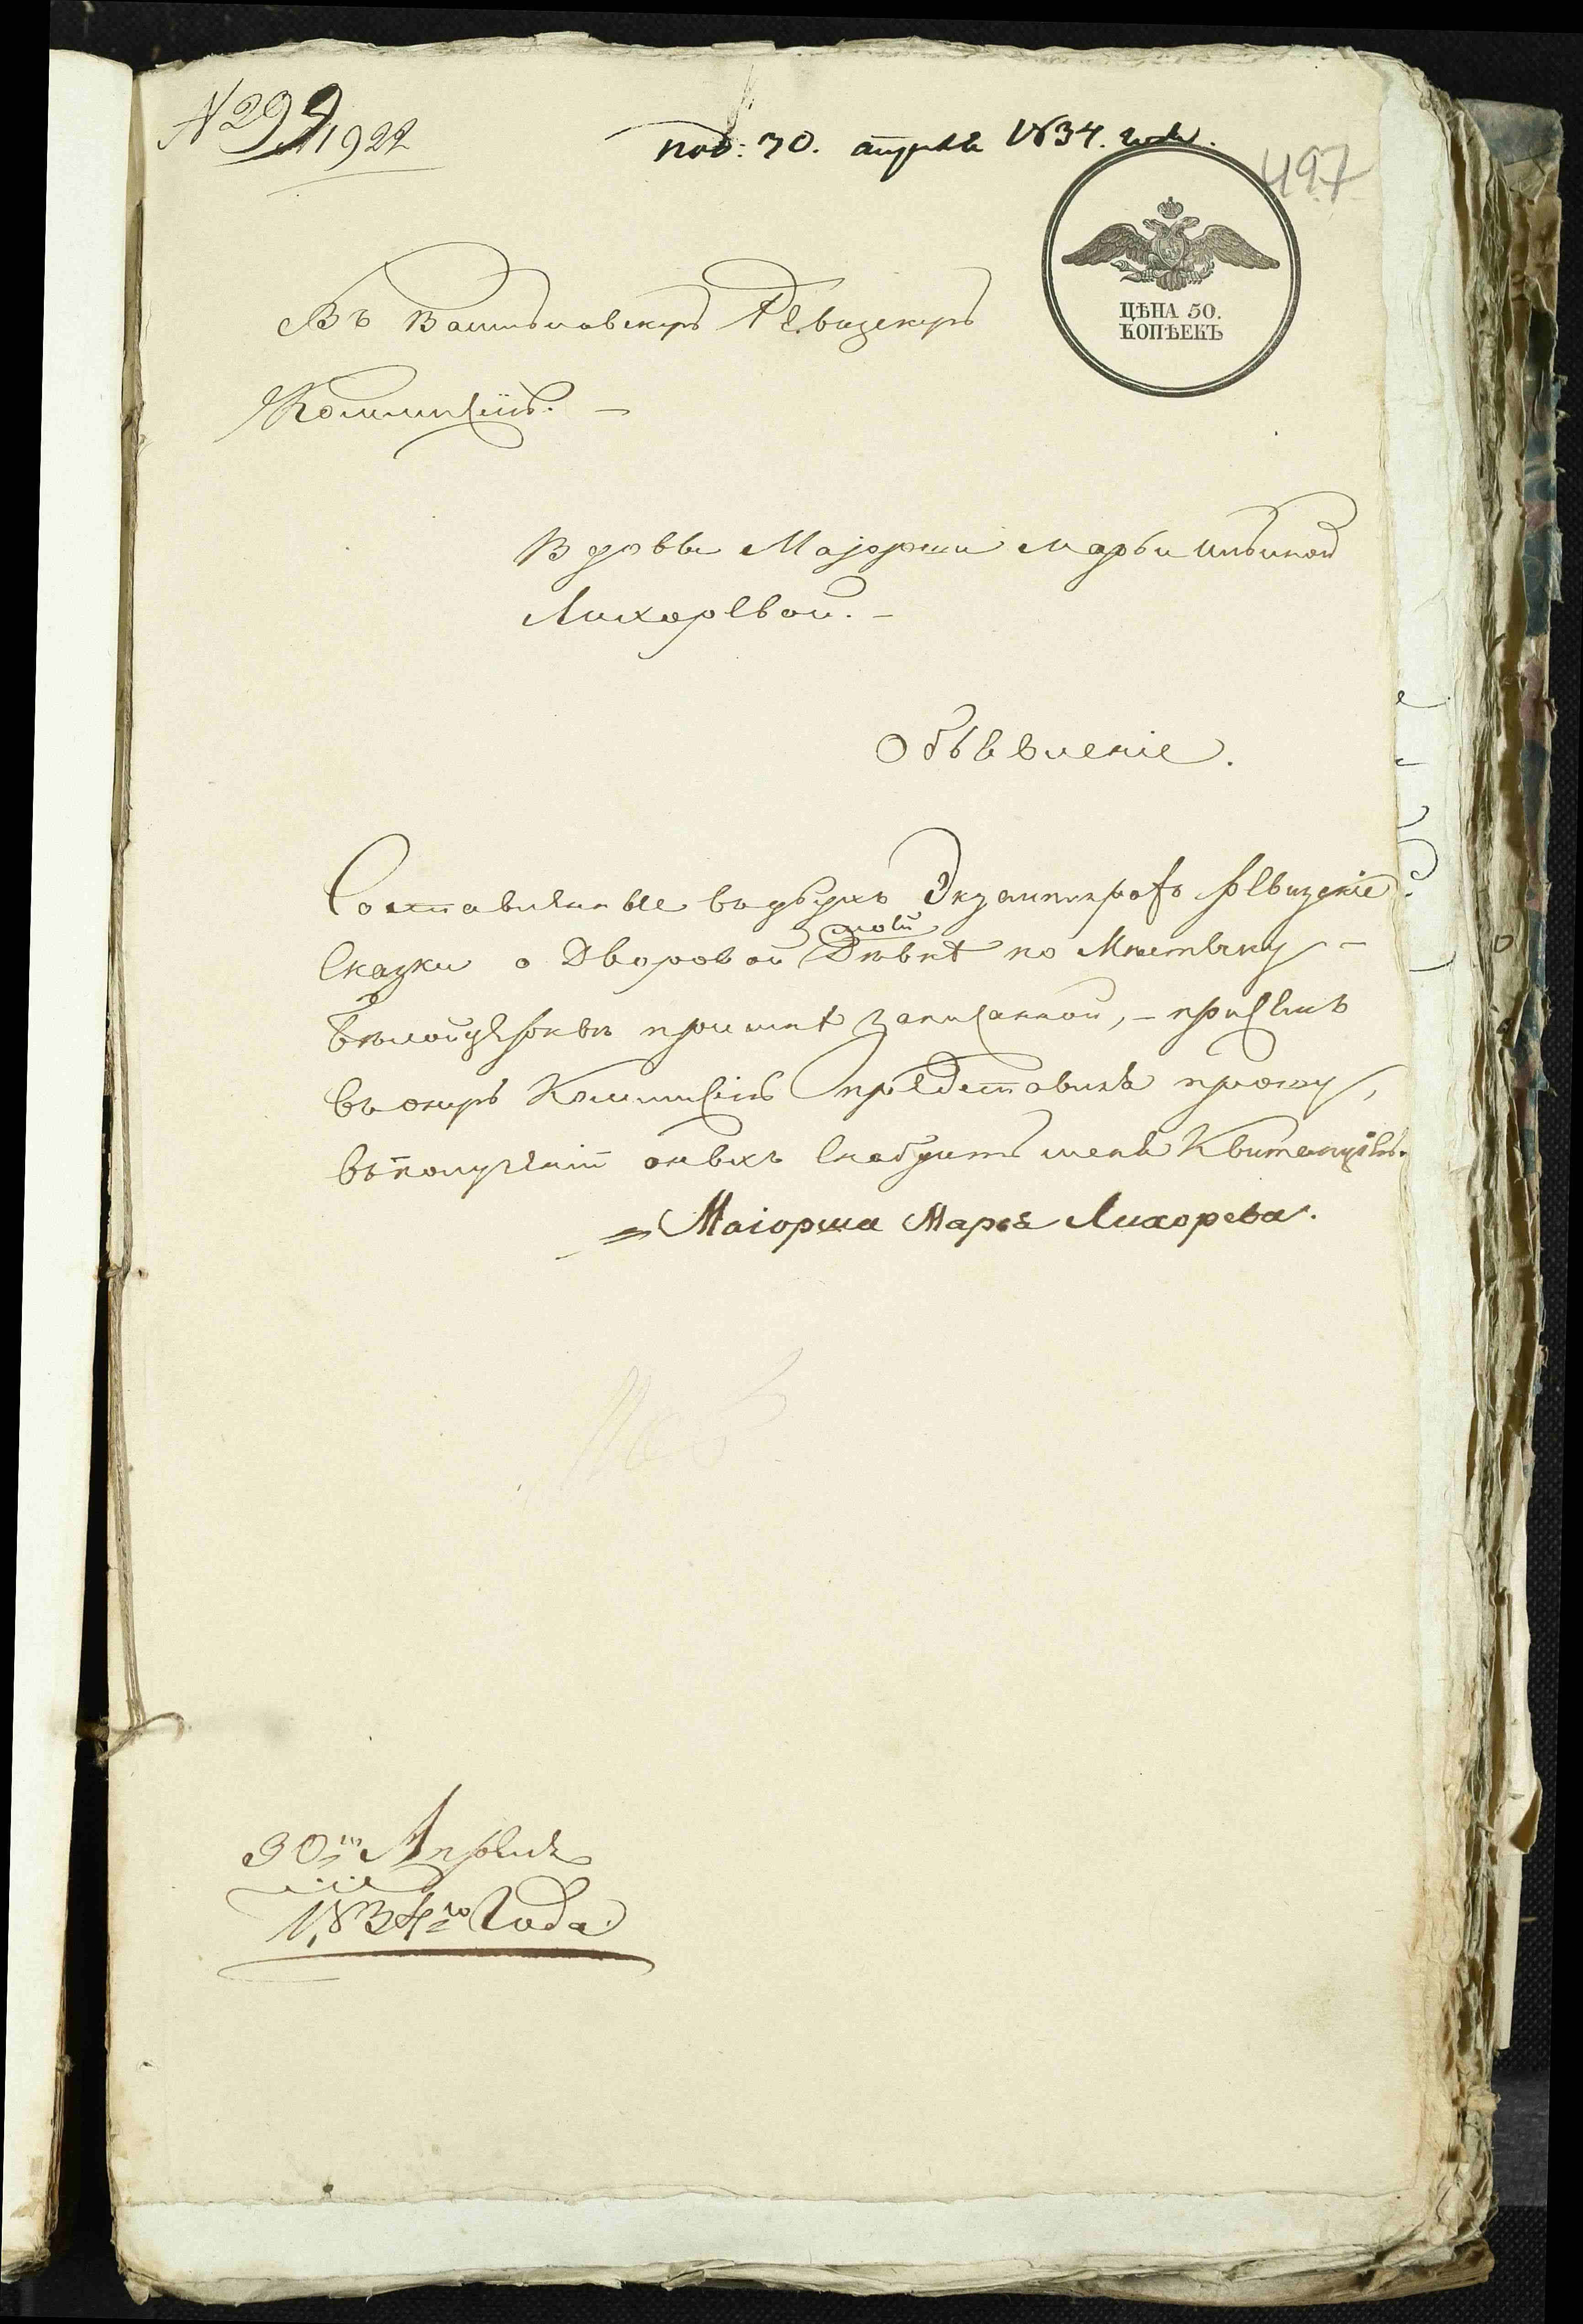 № 299/1922
под: 30. апреля 1834. года.
497
ЦѢНА 50.
КОПѢЕКЪ
Въ Васильковскую Ревизскую
Коммисію. —
Вдовы Маіорши Марьи Ильиной
Лихоревой. —
Объявленіе.
Составленные въ двухъ Экземплярахъ ревизскіе
моей
сказки о Дворовой Дѣвкѣ по Мѣстечку —
Бѣлойцеркви при мнѣ записанной, — при семъ
въ оную Коммисію представляя прошу,
въ полученіи оныхъ снабдить меня Квитанціею.
Маіорша Марья Лихорева.
30го Апреля
1834го Года